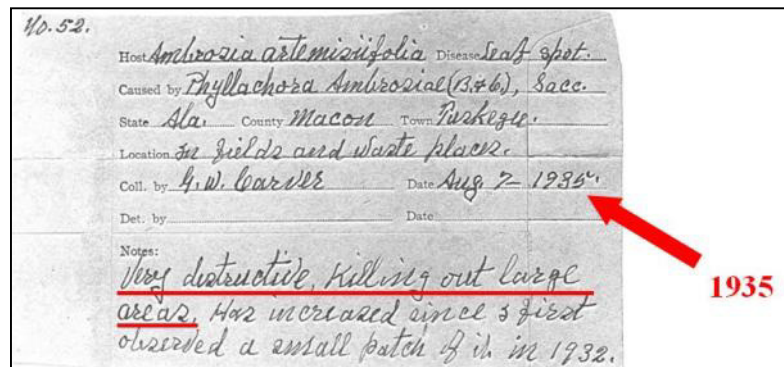 No. 52.
Host Ambrosia artemisiifolia Disease Leaf spot.
Caused by Phyllachora Ambrosiae (B.&C.), Sacc.
State Ala. County Macon Town Tuskegee.
Location In fields and waste places.
Coll. by G. W. Carver Date Aug. 7- 1935.
Det. by Date
Notes:
Very destructive, Killing out large
areas, Has increased since I first
observed a small patch of it in 1932.
1935